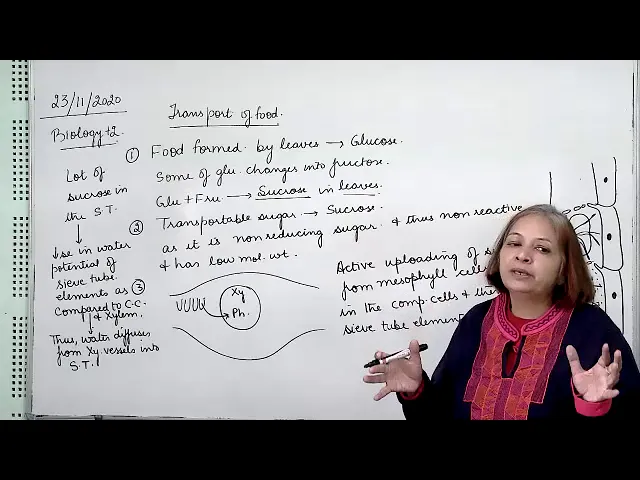 23/11/2020
Biology +2
Transport of food.
① Food formed by leaves → Glucose.
Some of glu. changes into fructose.
Glu + Fru. → Sucrose in leaves.
② Transportable sugar → Sucrose.
as it is non reducing sugar & thus non reactive
& has low mol. wt.
③
Xy
Ph.
Active uploading of
from mesophyll cells
in the comp. cells &
sieve tube
Lot of
sucrose in
the S.T.
↓
↓se in water
potential of
sieve tube
elements as
compared to C.C.
& Xylem.
↓
Thus, water diffuses
from Xy. vessels into
S.T.